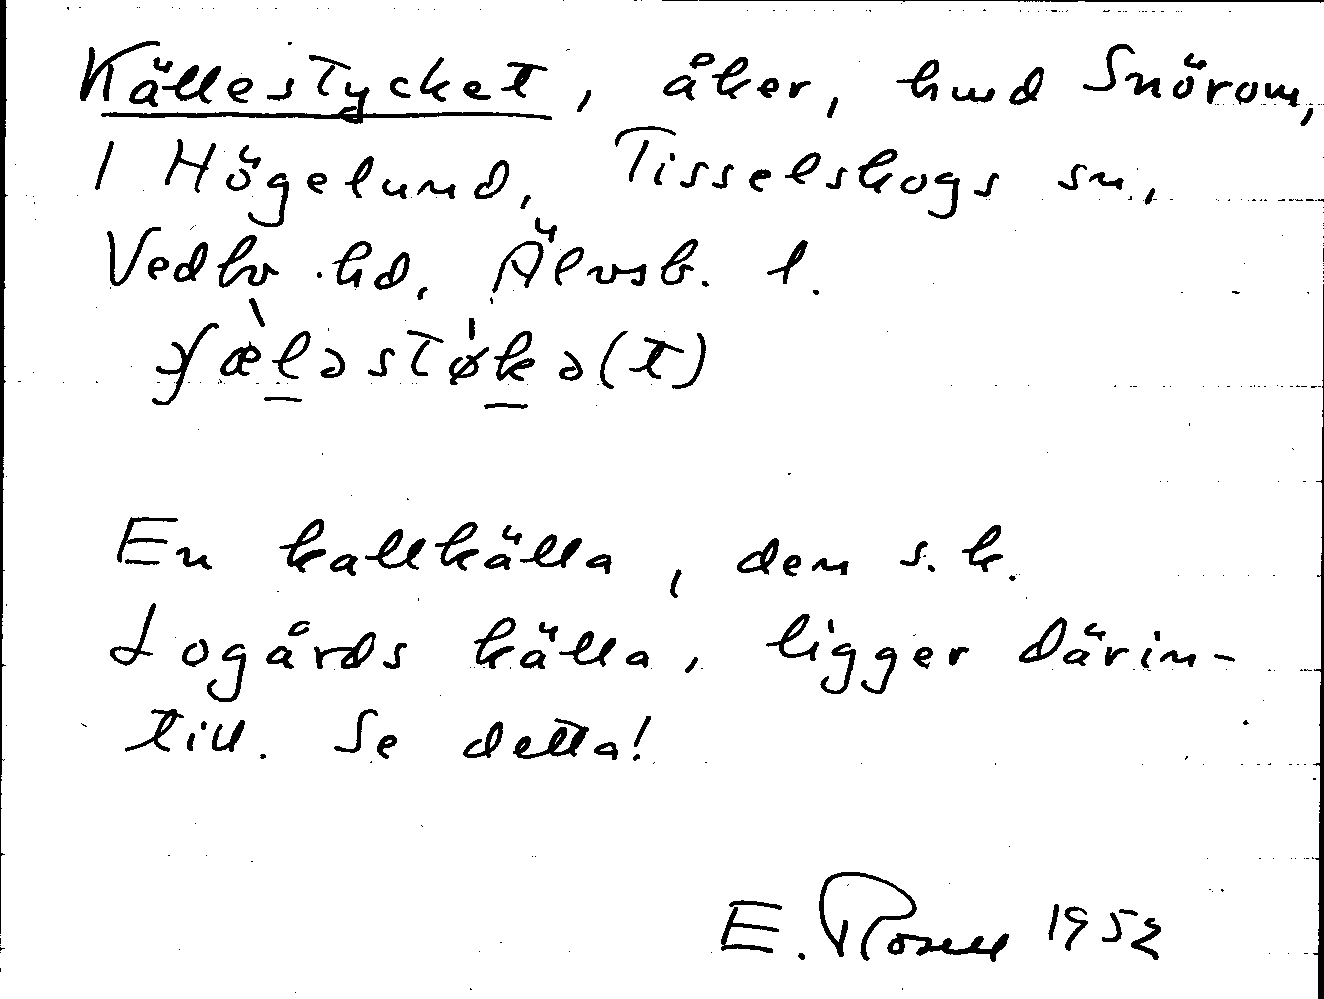 Källestycket, åker, hmd Snörom,
1 Högelund, Tisselskogs sn,
Vedbo hd, Älvsb. l.
ʃæ̀ləstø̍kə(t)
En kallkälla, den s.k.
Logårds källa, ligger därin-
till. Se detta!
E. Rosell 1952